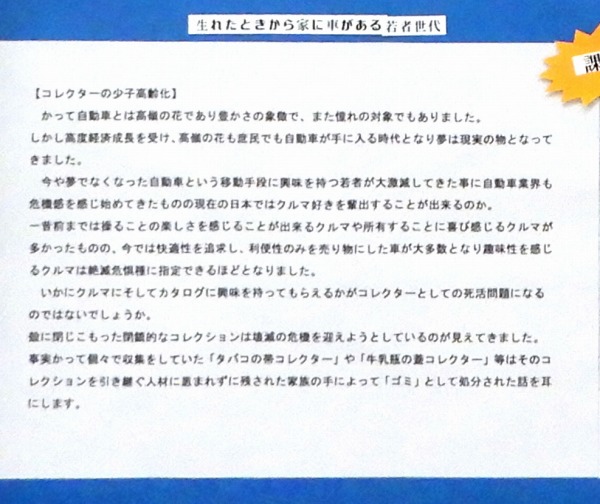 生れたときから家に車がある若者世代
課
【コレクターの少子高齢化】
かって自動車とは高嶺の花であり豊かさの象徴で、また憧れの対象でもありました。
しかし高度経済成長を受け、高嶺の花も庶民でも自動車が手に入る時代となり夢は現実の物となって
きました。
今や夢でなくなった自動車という移動手段に興味を持つ若者が大激減してきた事に自動車業界も
危機感を感じ始めてきたものの現在の日本ではクルマ好きを輩出することが出来るのか。
一昔前までは操ることの楽しさを感じることが出来るクルマや所有することに喜び感じるクルマが
多かったものの、今では快適性を追求し、利便性のみを売り物にした車が大多数となり趣味性を感じ
るクルマは絶滅危惧種に指定できるほどとなりました。
いかにクルマにそしてカタログに興味を持ってもらえるかがコレクターとしての死活問題になる
のではないでしょうか。
殻に閉じこもった閉鎖的なコレクションは壊滅の危機を迎えようとしているのが見えてきました。
事実かって個々で収集をしていた「タバコの帯コレクター」や「牛乳瓶の蓋コレクター」等はそのコ
レクションを引き継ぐ人材に恵まれずに残された家族の手によって「ゴミ」として処分された話を耳
にします。